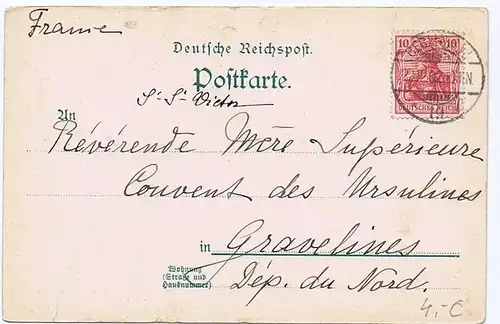 France
Deutsche Reichspost.
Postkarte.
10 10
DEUTSCHES REICH
An
Révérende Mère Supérieure
Convent des Ursulines
in Gravelines
Wohnung
(Straße und
Hausnummer)
Dép. du Nord.
4,-C